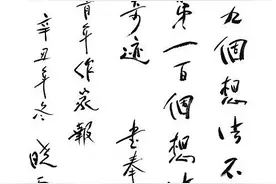 九個想法不
第一百個想
奇迹 書奉
青年作家報
辛丑年冬 曉